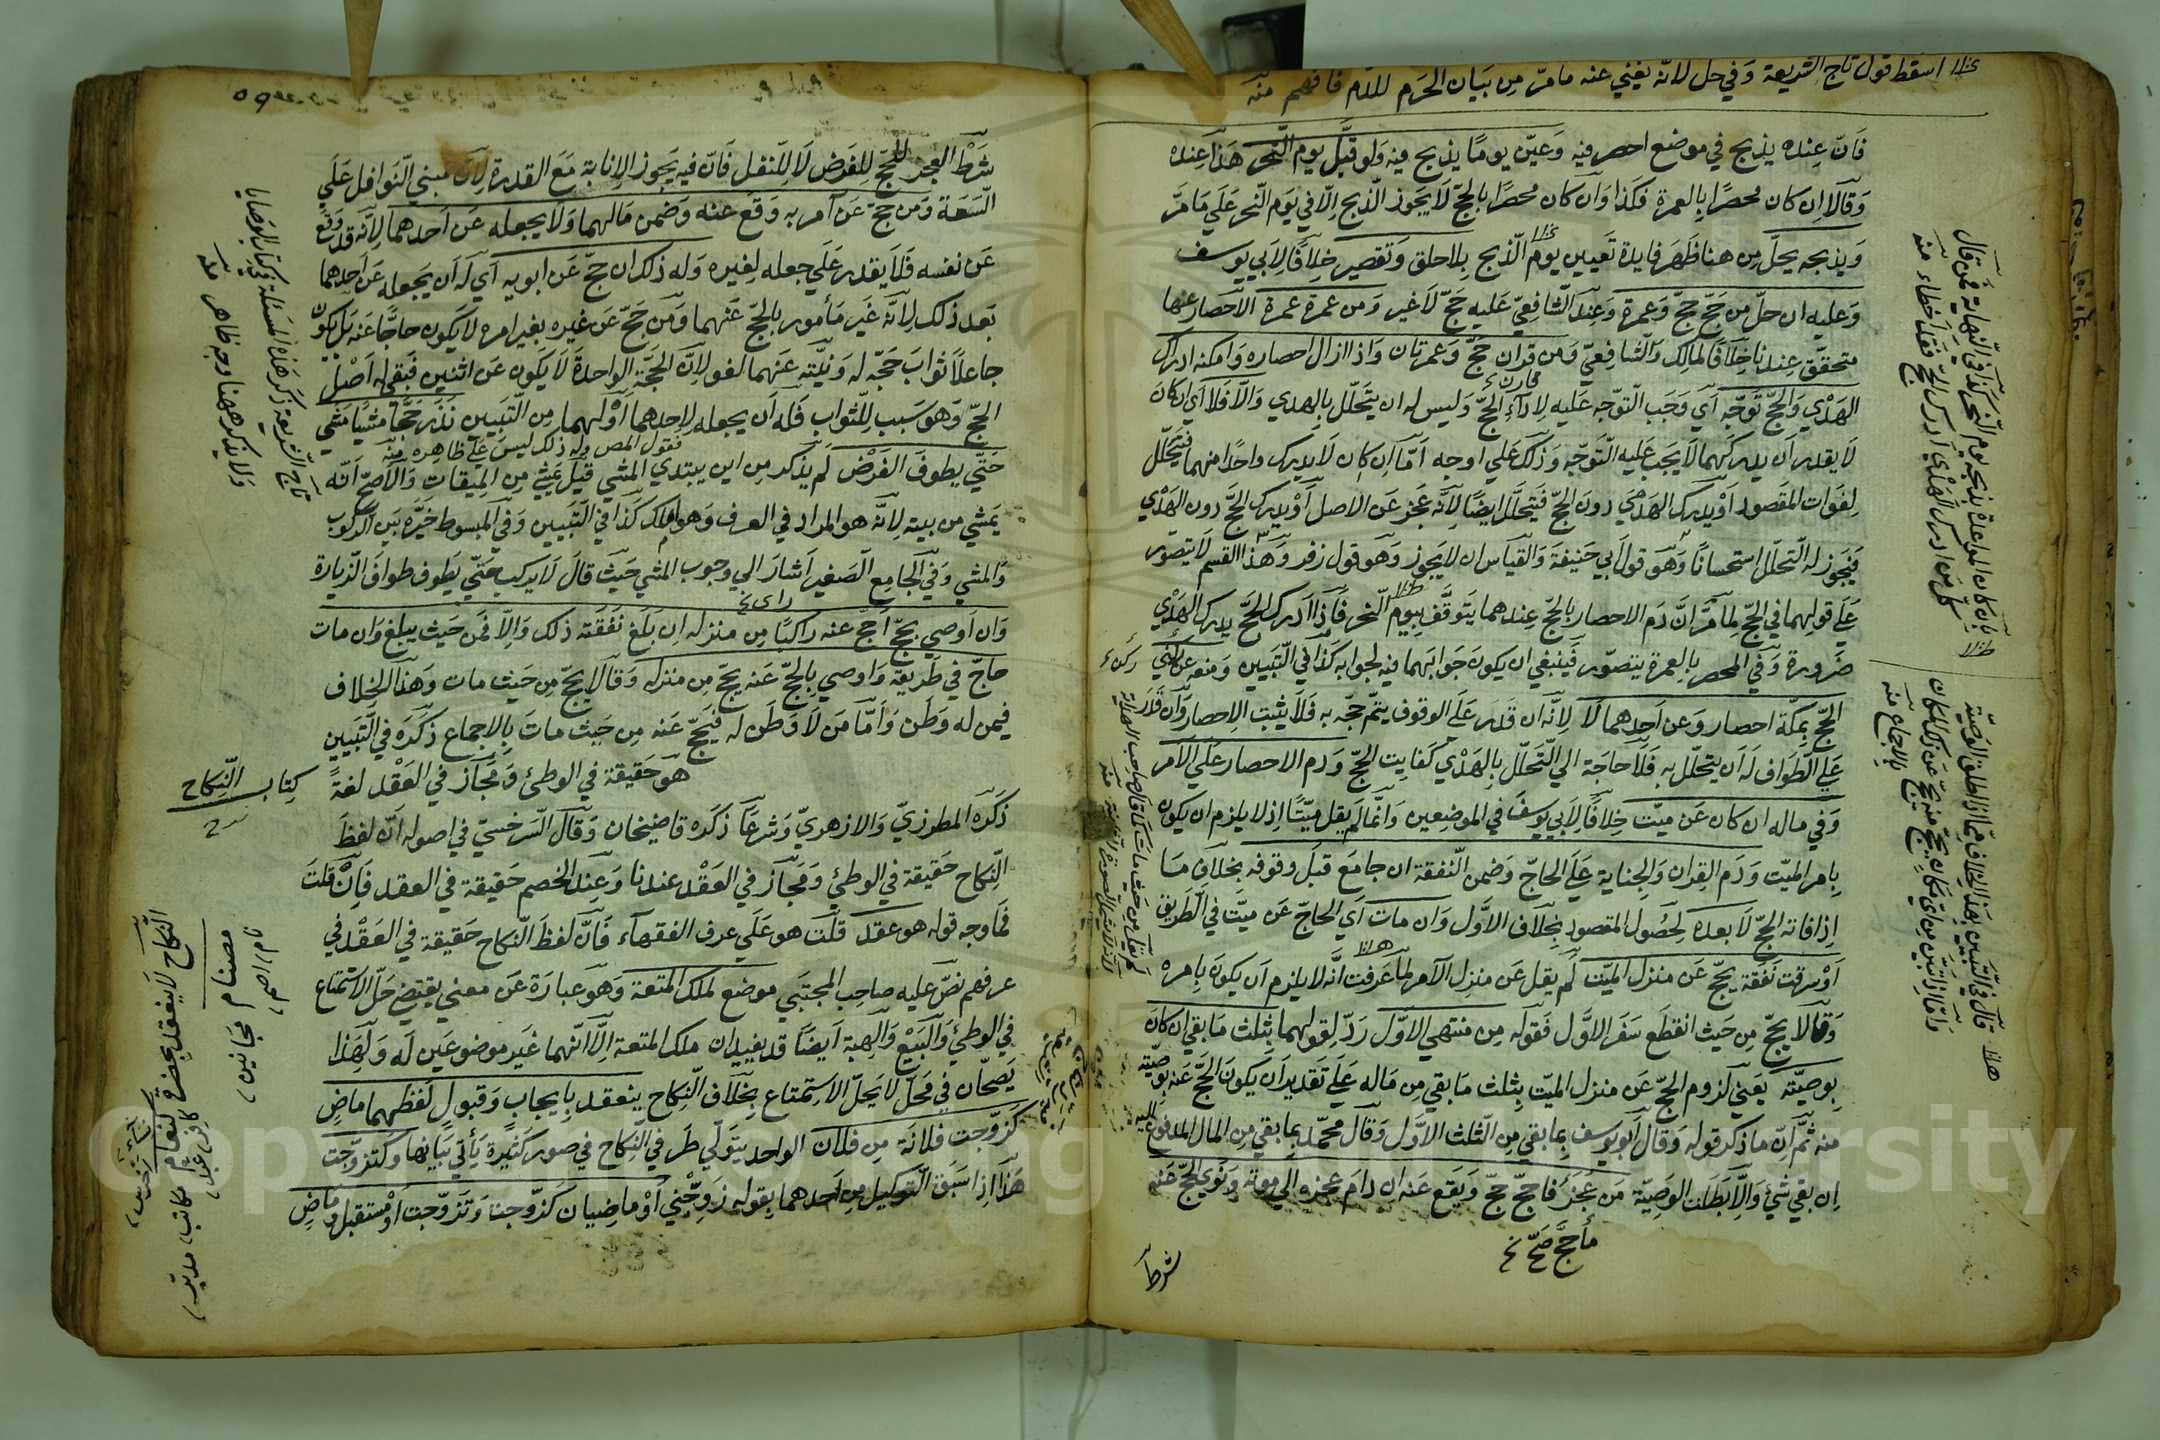 اسقط قول تاج الشريعة وفي حل لانه يغني عنه ما مر من بيان الحرم للدم فافهم منه
فان عنده يذبح في موضع احصر فيه وعين يوما يذبح فيه ولو قبل يوم النحر هذا عنده
وقالا ان كان محصرا بالعمرة فكذا وان كان محصرا بالحج لا يجوز الذبح الا في يوم النحر على ما مر
وبذبحه يحل من هنا ظهر فايدة تعيين يوم الذبح بلا حلق وتقصير خلافا لابي يوسف
وعليه ان حل من حج حج وعمرة وعند الشافعي عليه حج لا غير ومن عمرة عمرة الاحصار عنها
متحقق عندنا خلافا لمالك والشافعي ومن قران حج وعمرتان واذا زال احصاره وامكنه ادراك
الهدي والحج توجه اي وجب التوجه عليه لاداء الحج وليس له ان يتحلل بالهدي والا فلا اي ان كان
لا يقدر ان يدركهما لا يجب عليه التوجه وذلك على اوجه اما ان كان لا يدرك واحدا منهما فيتحلل
لفوات المقصود او يدرك الهدي دون الحج فيتحلل ايضا لانه عجز عن الاصل او يدرك الحج دون الهدي
فيجوز له التحلل استحسانا وهو قول ابي حنيفة والقياس ان لا يجوز وهو قول زفر وهذا القسم لا يتصور
على قولهما في الحج لما مر ان دم الاحصار بالحج عندهما يتوقف بيوم النحر فاذا ادرك الحج يدرك الهدي
ضرورة وفي المحصر بالعمرة يتصور فينبغي ان يكون جوابهما فيه كجوابه كذا في التبيين ومنعه عن ركني
الحج بمكة احصار وعن احدهما لا لانه ان قدر على الوقوف يتم حجه به فلا يثبت الاحصار وان قدر
على الطواف له ان يتحلل به فلا حاجة الى التحلل بالهدي كفايت الحج ودم الاحصار على الآمر
وفي ماله ان كان عن ميت خلافا لابي يوسف في الموضعين وانما لم يقل ميتا اذ لا يلزم ان يكون
بامر الميت ودم القران والجناية على الحاج وضمن النفقة ان جامع قبل وقوفه بخلاف ما
اذا فاته الحج لا بعده لحصول المقصود بخلاف الاول وان مات اي الحاج عن ميت في الطريق
او سرقت نفقته يحج عن منزل الميت لم يقل عن منزل الآمر لما عرفت انه لا يلزم ان يكون بامره
وقالا يحج من حيث انقطع سفر الاول فقوله من منتهى الاول رد لقولهما بثلث ما بقي ان كان
بوصيته يعني لزوم الحج عن منزل الميت بثلث ما بقي من ماله على تقدير ان يكون الحج عنه بوصيته
منه ثم ان ما ذكر قوله وقال ابو يوسف بما بقي من الثلث الاول وقال محمد بما بقي من المال المدفوع اليه
ان بقي شئ والا بطلت الوصية من عجز فاحج حج ويقع عنه ان دام عجزه الى موته ونوى الحج عنه
شرط
شرط العجز للحج للفرض لا للنفل فان فيه يجوز الانابة مع القدرة لان مبني النوافل على
السعة ومن حج عن آمريه وقع عنه وضمن مالهما ولا يجعله عن احدهما لانه قد وقع
عن نفسه فلا يقدر على جعله لغيره وله ذلك ان حج عن ابويه اي له ان يجعله عن احدهما
بعد ذلك لانه غير مأمور بالحج عنهما ومن حج عن غيره بغير امره لا يكون حاجا عنه بل يكون
جاعلا ثواب حجه له ونيته عنهما لغو لان الحجة الواحدة لا يكون عن اثنين فبقي له اصل
الحج وهو سبب للثواب فله ان يجعله لاحدهما او لهما من التبيين نذر حجا مشيا مشى
فقول المص وله ذلك ليس على ظاهره منه
حتى يطوف الفرض لم يذكر من اين يبتدي المشي قيل يمشي من الميقات والاصح انه
يمشي من بيته لانه هو المراد في العرف وهو املك كذا في التبيين وفي المبسوط خيره بين الركوب
والمشي وفي الجامع الصغير اشار الى وجوب المشي حيث قال لا يركب حتى يطوف طواف الزيارة
وان اوصي بحج احج عنه راكبا من منزله ان بلغ نفقته ذلك والا فمن حيث يبلغ وان مات
حاج في طريقه واوصي بالحج عنه يحج من منزله وقالا يحج من حيث مات وهذا الخلاف
فيمن له وطن واما من لا وطن له فيحج عنه من حيث مات بالاجماع ذكره في التبيين
كتاب النكاح
هو حقيقة في الوطئ ومجاز في العقد لغة
ذكره المطرزي والازهري وشرعا ذكره قاضيخان وقال السرخسي في اصوله ان لفظ
النكاح حقيقة في الوطئ ومجاز في العقد عندنا وعند الخصم حقيقة في العقد فان قلت
فما وجه قوله هو عقد قلت هو على عرف الفقهاء فان لفظ النكاح حقيقة في العقد في
عرفهم نص عليه صاحب المجتبي موضع لملك المتعة وهو عبارة عن معني يقتضي حل الاستمتاع
في الوطئ والبيع والهبة ايضا قد يفيدان ملك المتعة الا انهما غير موضوعين له ولهذا
يصحان في محل لا يحل الاستمتاع بخلاف النكاح ينعقد بايجاب وقبول لفظهما ماض
كزوجت فلانة من فلان الواحد يتولى طرفي النكاح في صور كثيرة يأتي بيانها وكتزوجت
هذا اذا سبق التوكيل من احدهما بقوله زوجني او ماضيان كزوجت وتزوجت او مستقبل وماض
Copyright © King Saud University